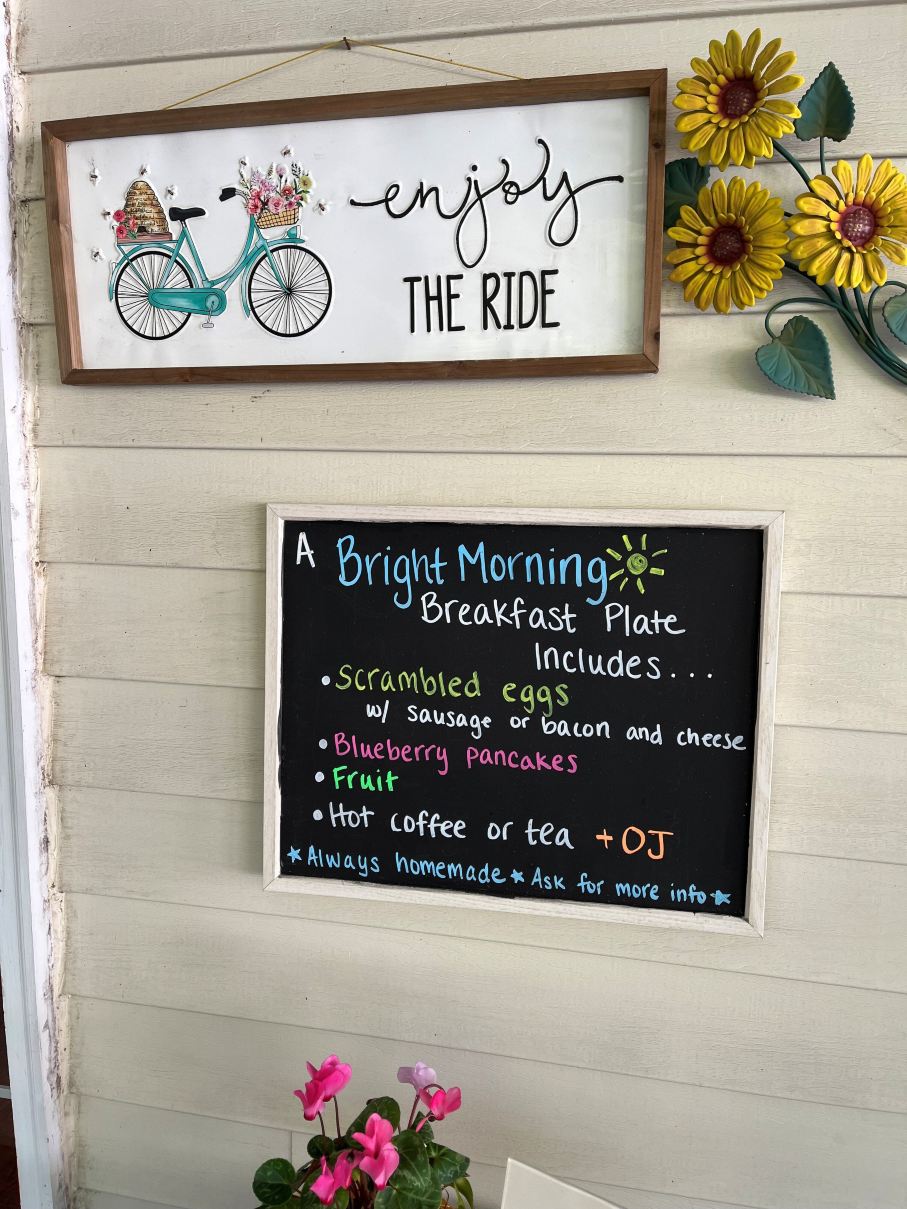 enjoy
THE RIDE
A Bright Morning
Breakfast Plate
Includes...
• Scrambled eggs
w/ sausage or bacon and cheese
• Blueberry pancakes
• Fruit
• Hot coffee or tea + OJ
★ Always homemade ★ Ask for more info ★